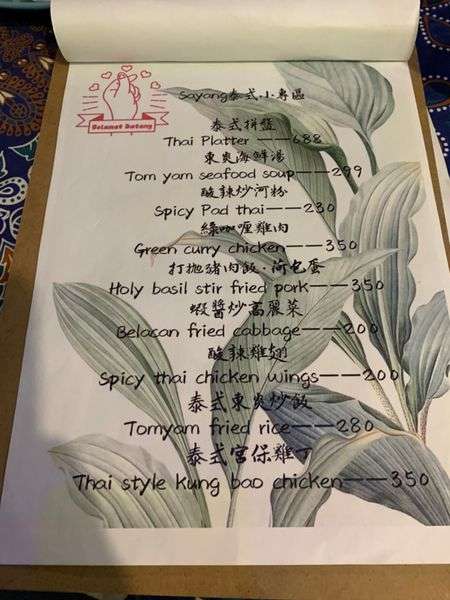 Selamat Datang
Sayang泰式小專區
泰式拼盤
Thai Platter——688
東炎海鮮湯
Tom yam seafood soup——299
酸辣炒河粉
Spicy Pad thai——230
綠咖哩雞肉
Green curry chicken——350
打拋豬肉飯.荷包蛋
Holy basil stir fried pork——350
蝦醬炒高麗菜
Belacan fried cabbage——200
酸辣雞翅
Spicy thai chicken wings——200
泰式東炎炒飯
Tomyam fried rice——280
泰式宮保雞丁
Thai style kung bao chicken——350